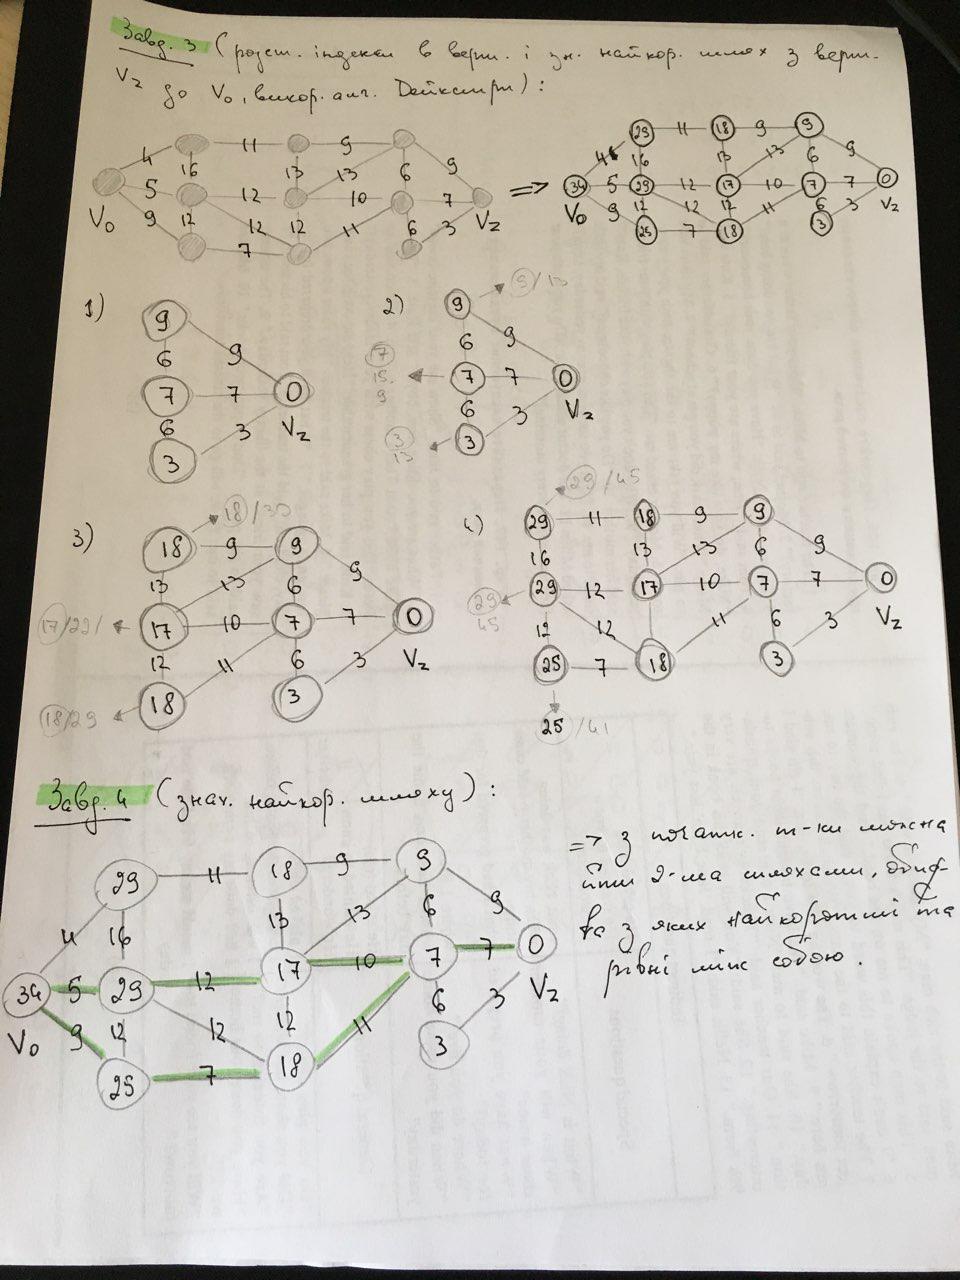 Завд. 3 (розст. індекси в верш. і зн. найкор. шлях з верш.
Vz до V0, викор. алг. Дейкстри):
4 11 9 9
16 13 13 6
5 12 10 7
V0 9 12 12 12 11 6 3 Vz
7
=>
29 11 18 9 9
4 16 13 13 6 9
34 5 29 12 17 10 7 7 0
V0 9 12 12 12 11 6 3 Vz
25 7 18 3
1)
9
6 9
7 7 0
6 3 Vz
3
2)
9 9/13
6 9
7 15 9
7 7 0
6 3 Vz
3 13
3
3)
18/35
18 9 9
13 13 6 9
17/22/ 17 10 7 7 0
12 11 6 3 Vz
18/29 18 3
4)
29/45
29 11 18 9 9
16 13 13 6 9
29 45
29 12 17 10 7 7 0
12 12 11 6 3 Vz
25 7 18 3
25/41
Завд. 4 (знах. найкор. шляху):
29 11 18 9 9
4 16 13 13 6 9
34 5 29 12 17 10 7 7 0
V0 9 12 12 12 11 6 3 Vz
25 7 18 3
=> з початк. т-ки можна
йти 2-ма шляхами, обид-
ва з яких найкоротші та
рівні між собою.